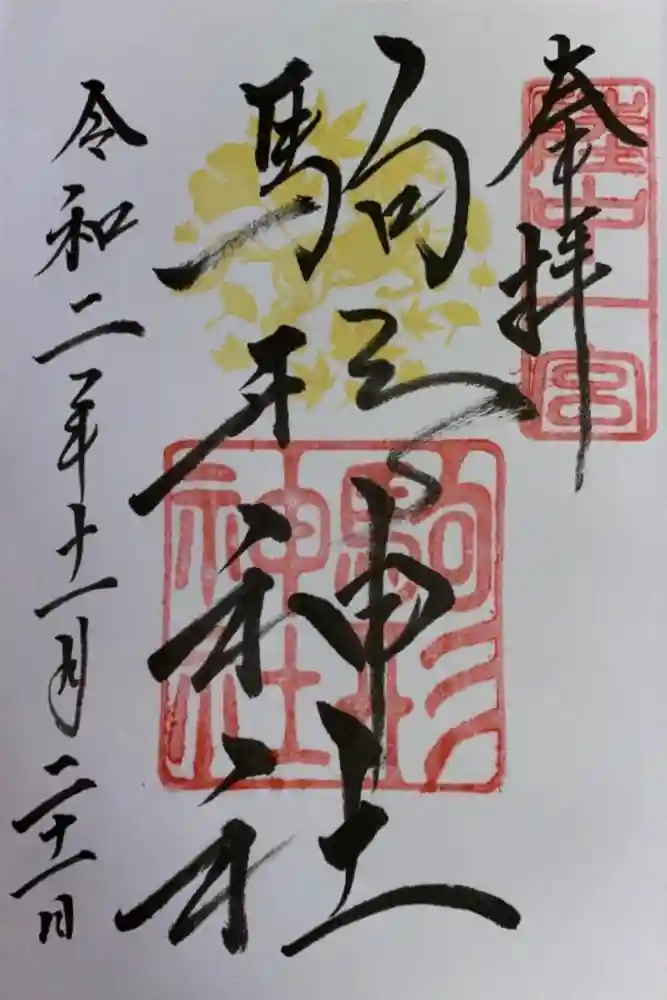 奉拝
陸中一宮
駒形神社
駒形
神社
令和二年十一月二十一日